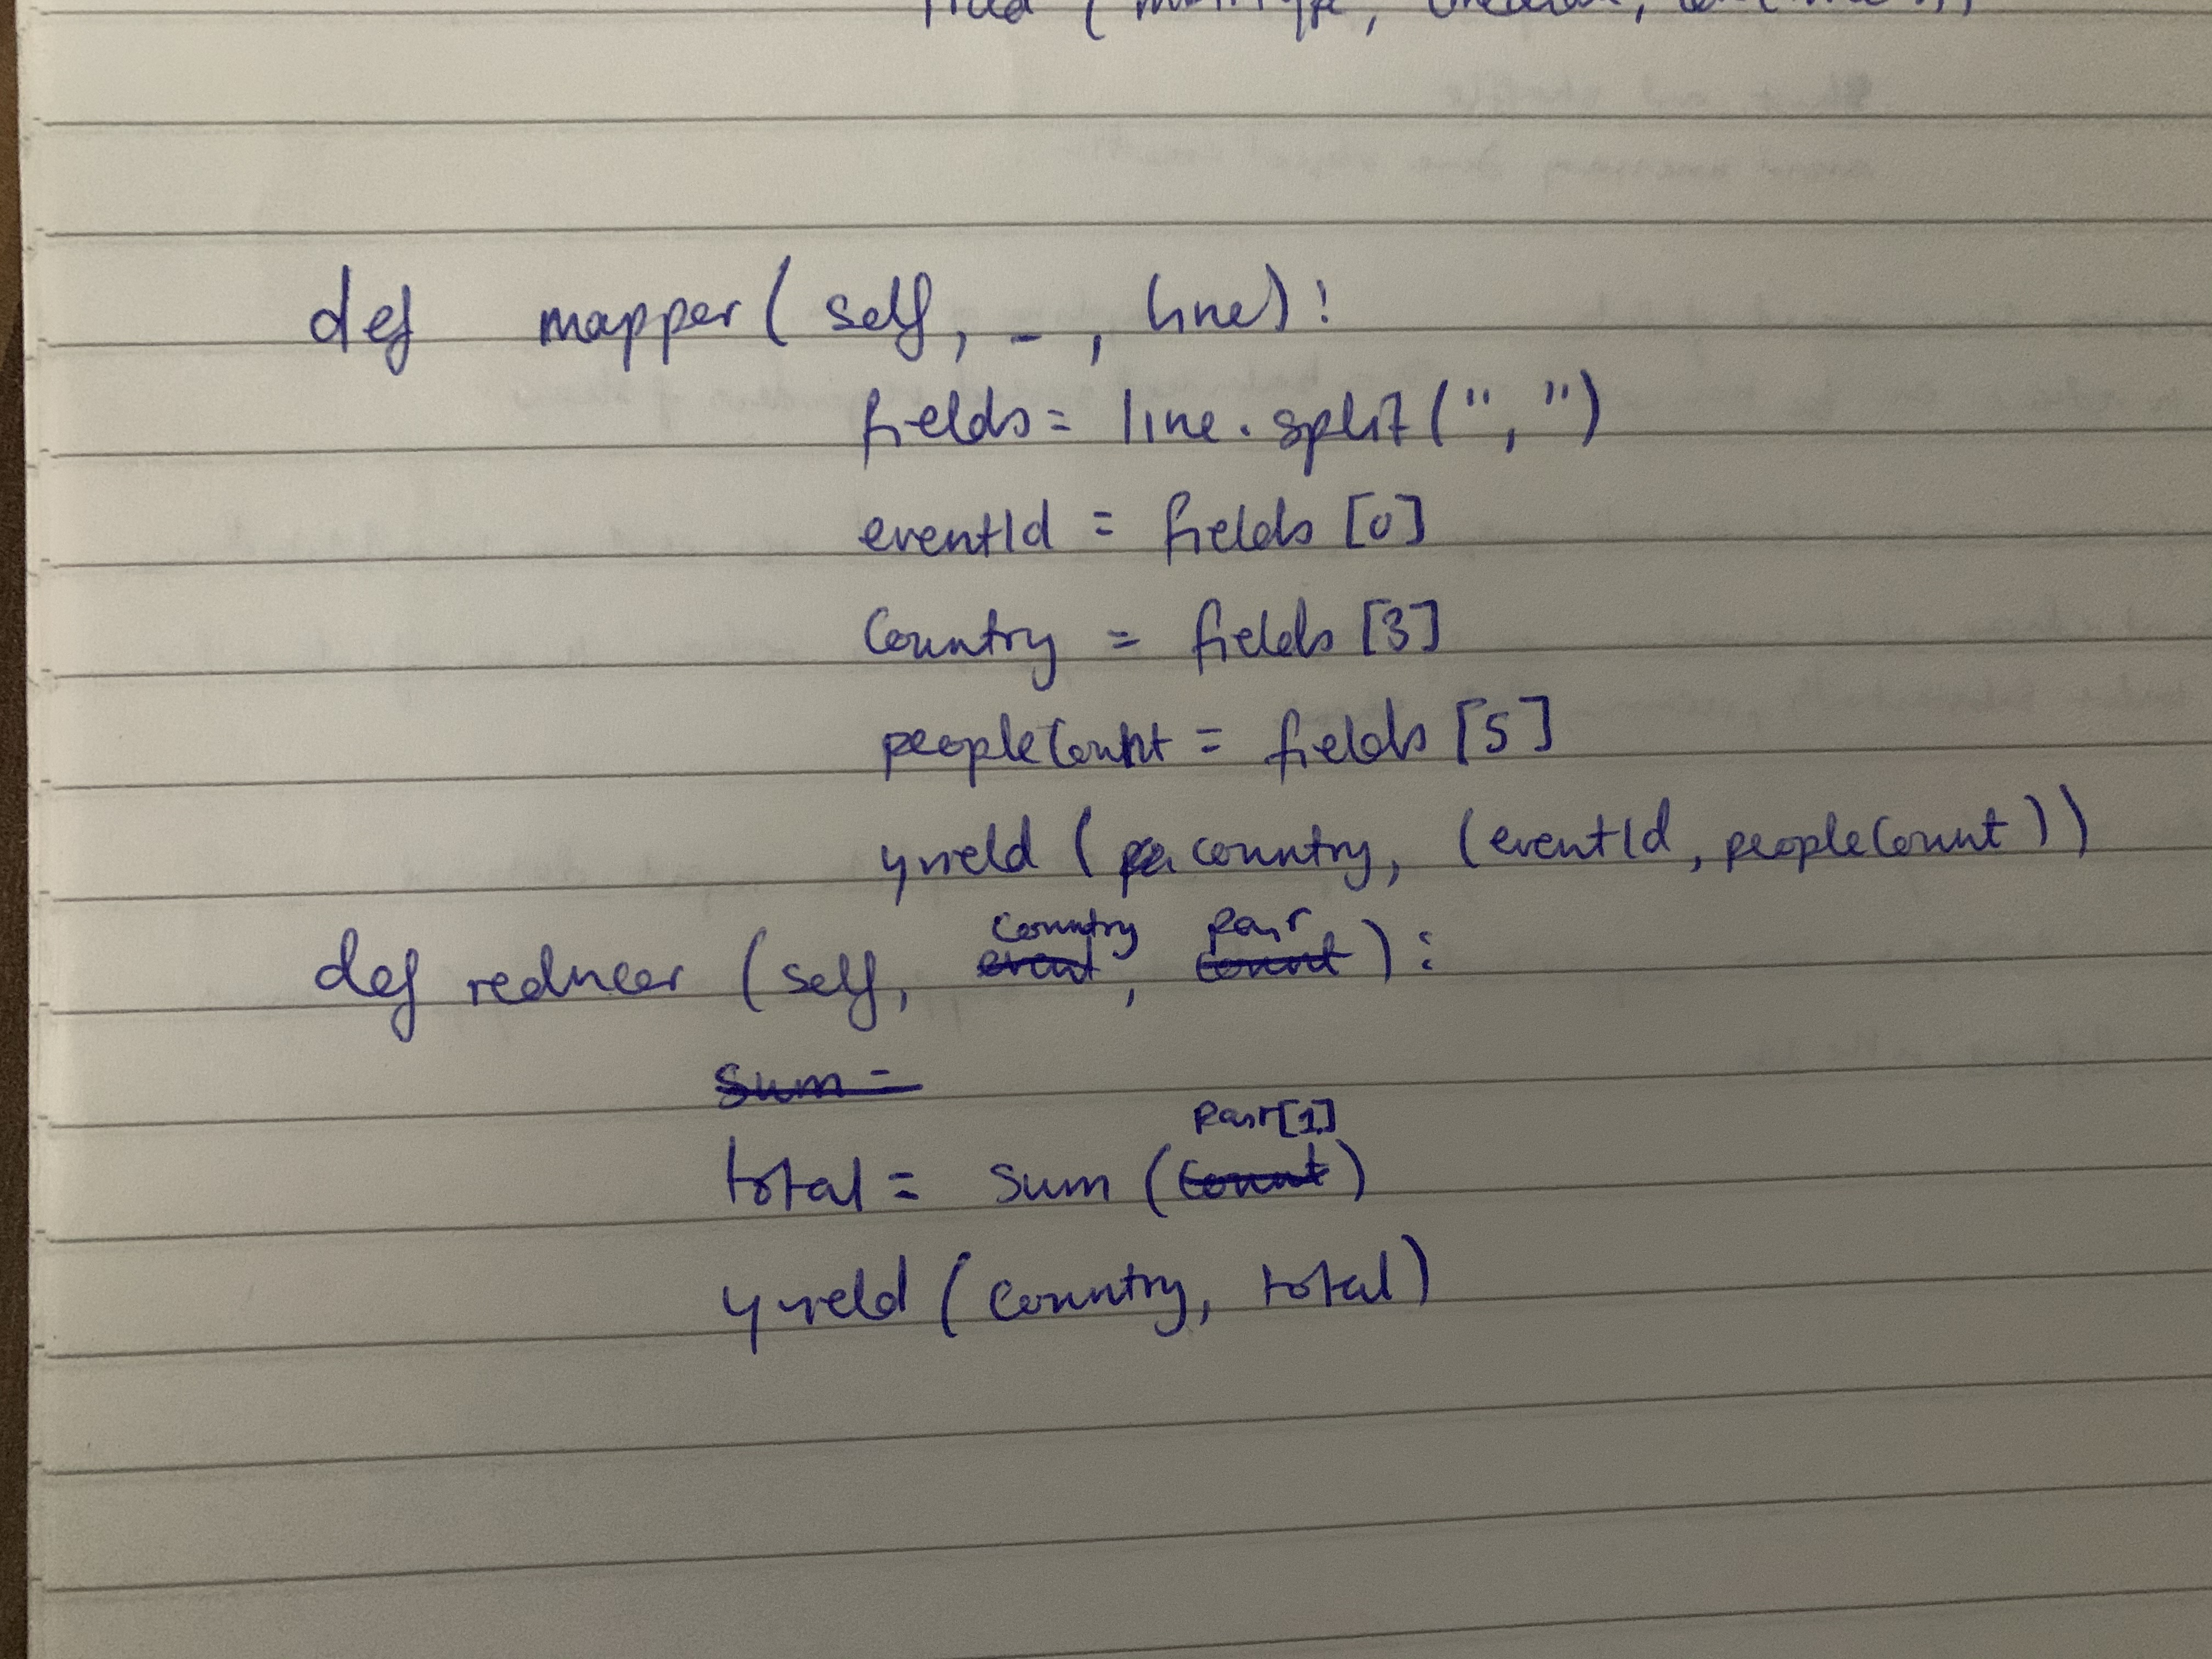 def mapper(self, _, line):
fields = line.split(",")
eventId = fields[0]
Country = fields[3]
peopleCount = fields[5]
yield (country, (eventId, peopleCount))
def reducer (self, Country, pair):
Sum =
total = sum(pair[1])
yield (Country, total)